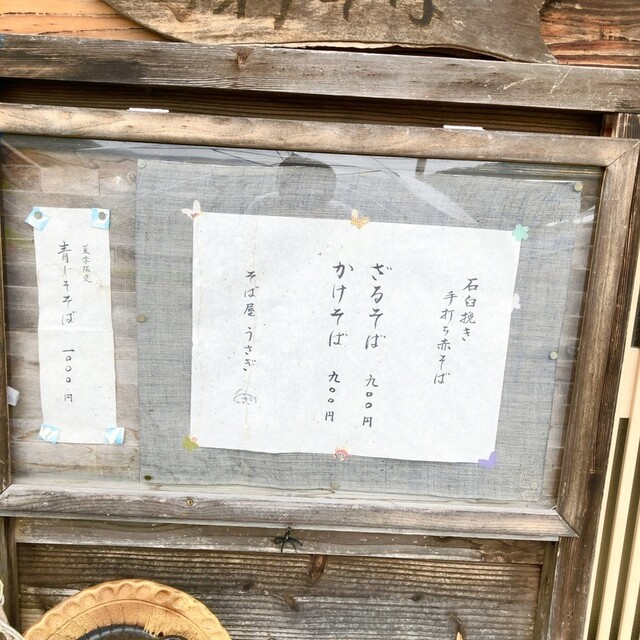 石臼挽き
手打ち赤そば
ざるそば 九〇〇円
かけそば 九〇〇円
そば屋 うさぎ
夏季限定
青じそそば 一〇〇〇円